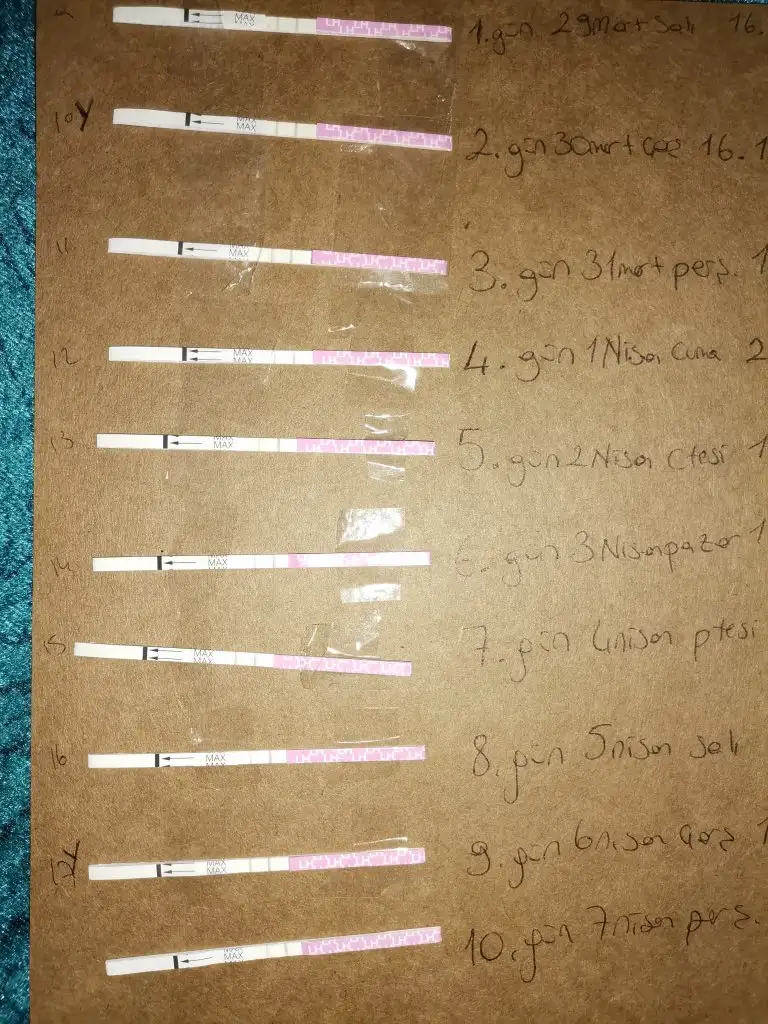 MAX
MAX
1.gün 29Mart Salı 16.
10Y
MAX
MAX
2. gün 30mart 16.1
11
MAX
MAX
3. gün 31mart perş. 1
12
MAX
MAX
4. gün 1Nisan Cuma 2
13
MAX
MAX
5. gün 2 Nisan Ctesi 1
14
MAX
MAX
6. gün 3 Nisan pazar 1
15
MAX
MAX
7. gün 4nisan ptesi
16
MAX
MAX
8. gün 5nisan salı
MAX
MAX
9. gün 6nisan 1
MAX
MAX
10. gün 7nisan perş.